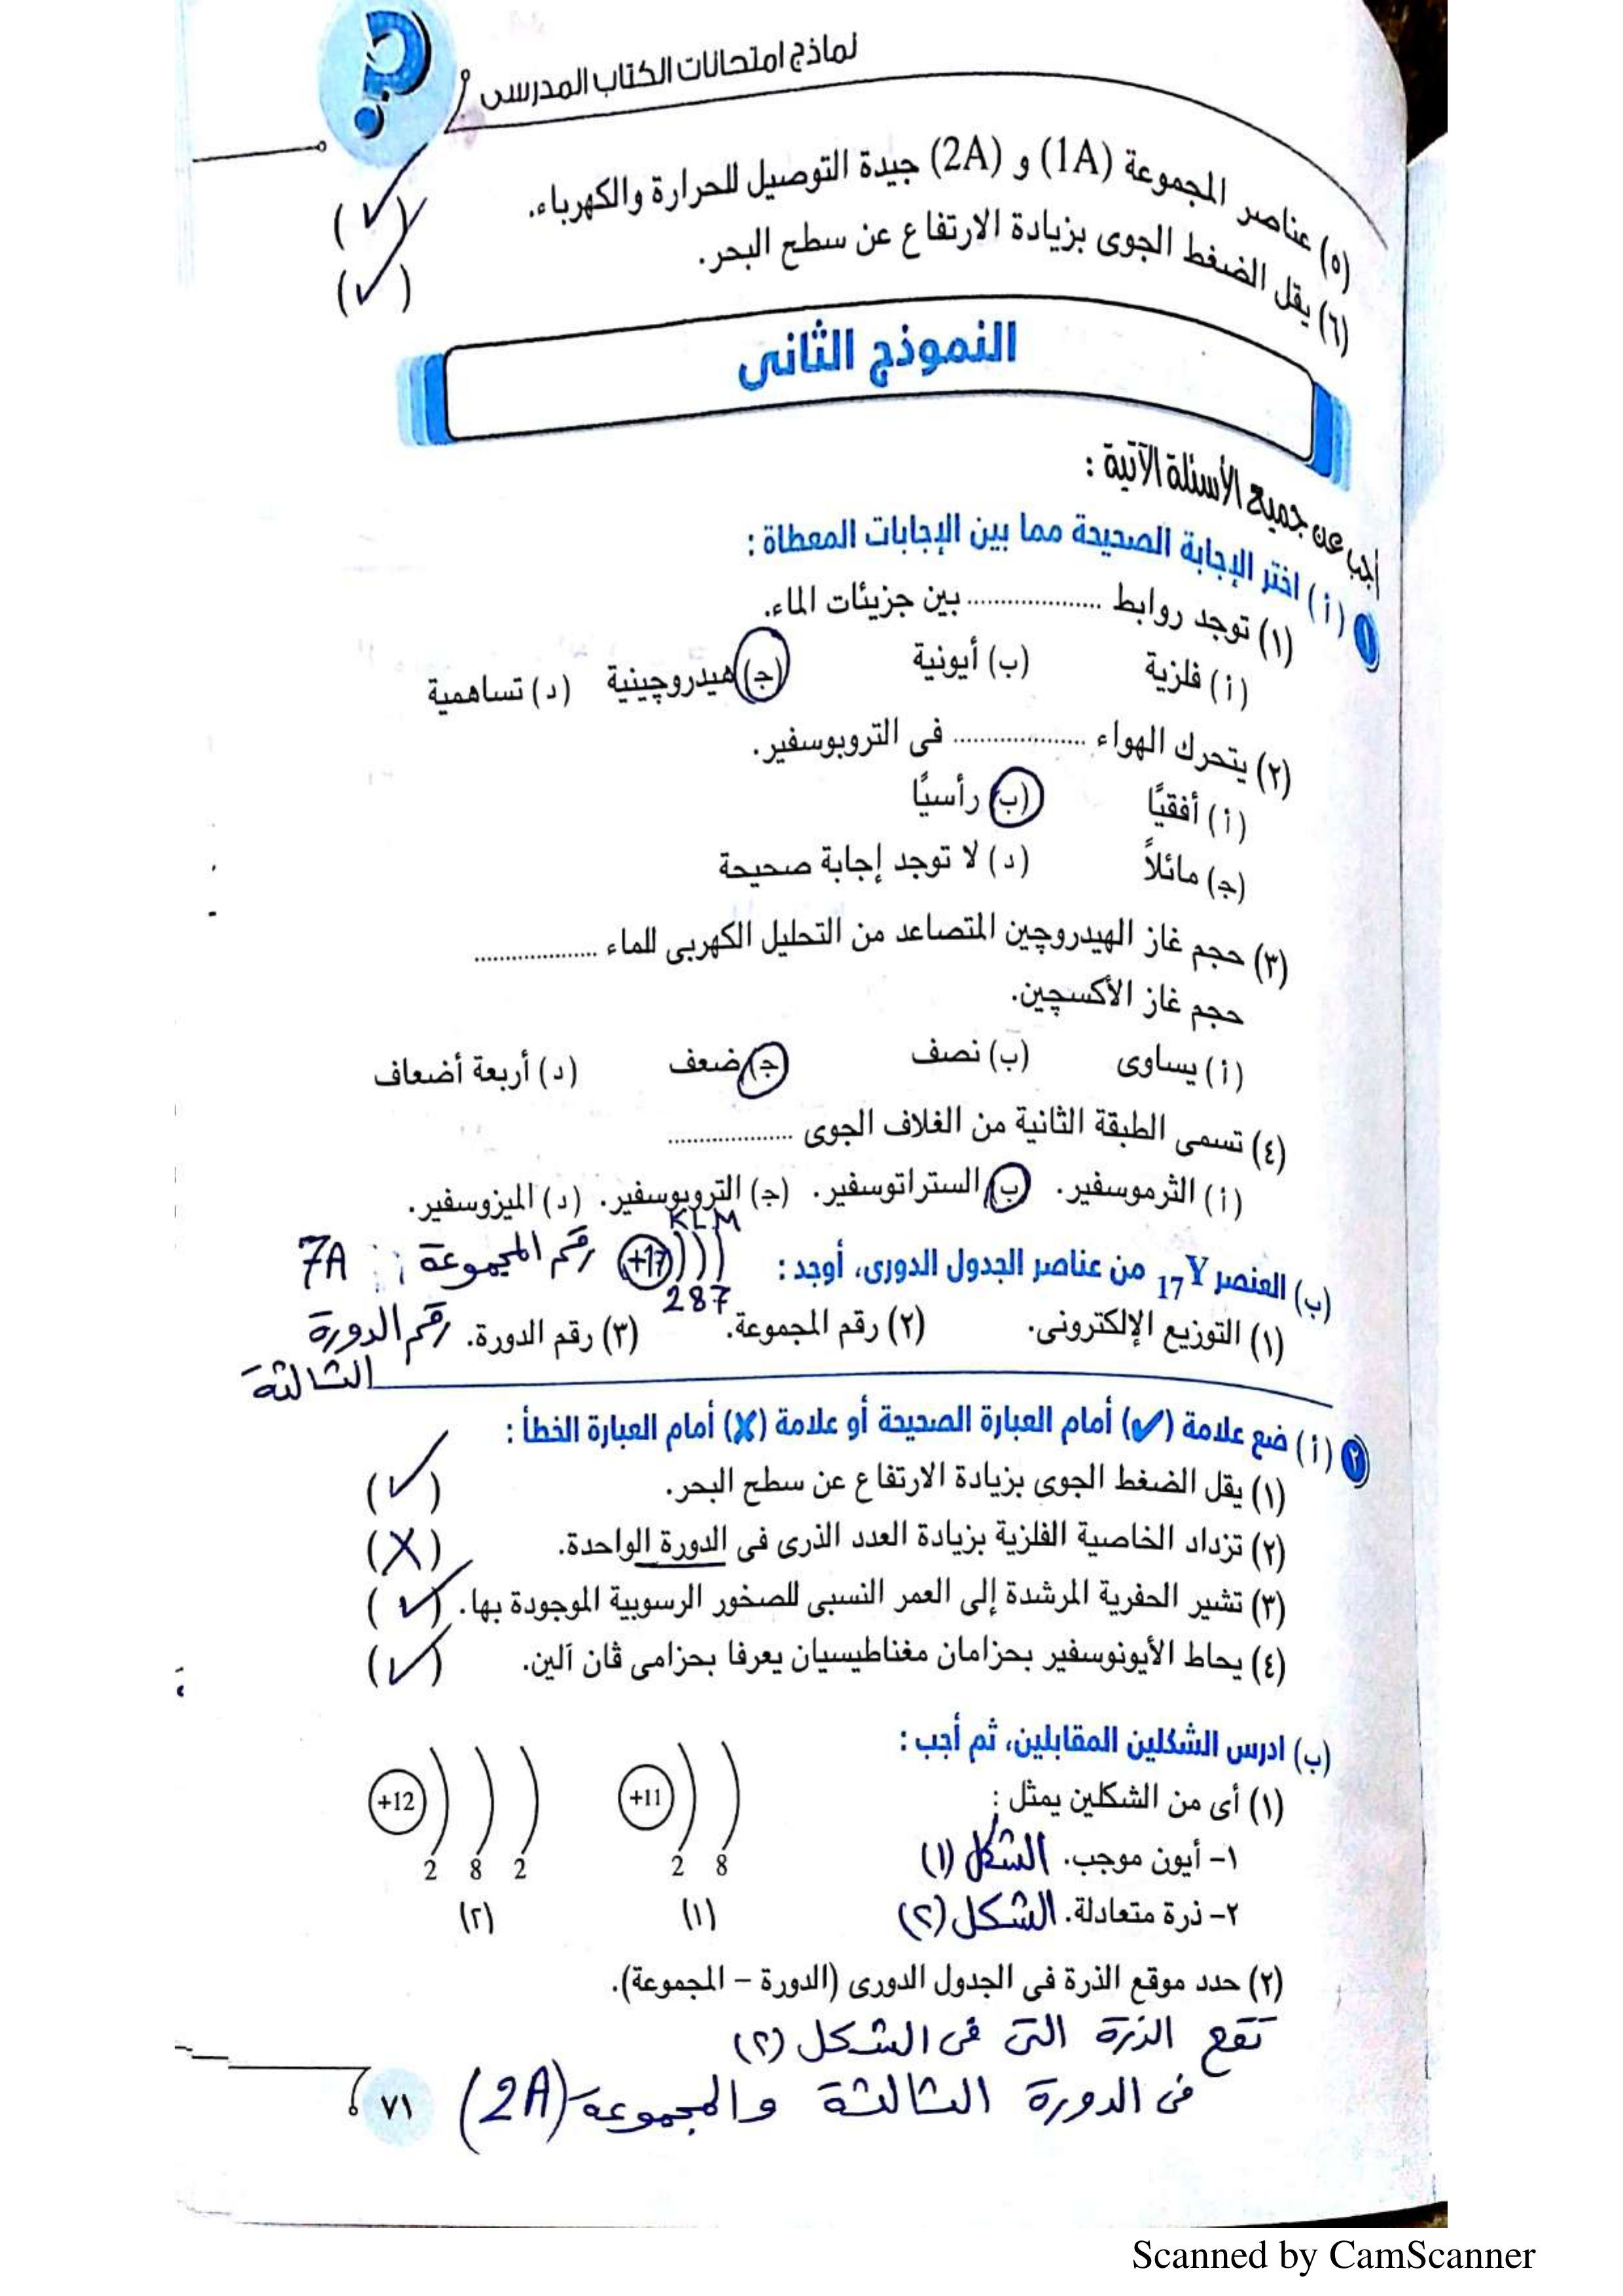 نماذج امتحانات الكتاب المدرسى
(٥) عناصر المجموعة (1A) و (2A) جيدة التوصيل للحرارة والكهرباء. (✓)
(٦) يقل الضغط الجوى بزيادة الارتفاع عن سطح البحر. (✓)
النموذج الثانى
أجب عن جميع الأسئلة الآتية :
١ (أ) اختر الإجابة الصحيحة مما بين الإجابات المعطاة :
(١) توجد روابط .................. بين جزيئات الماء.
(أ) فلزية (ب) أيونية (ج) هيدروچينية (د) تساهمية
(٢) يتحرك الهواء .................. فى التروبوسفير.
(أ) أفقيًا (ب) رأسيًا
(ج) مائلاً (د) لا توجد إجابة صحيحة
(٣) حجم غاز الهيدروچين المتصاعد من التحليل الكهربى للماء ..................
حجم غاز الأكسچين.
(أ) يساوى (ب) نصف (ج) ضعف (د) أربعة أضعاف
(٤) تسمى الطبقة الثانية من الغلاف الجوى ..................
(أ) الثرموسفير. (ب) الستراتوسفير. (ج) التروبوسفير. (د) الميزوسفير.
KLM
(ب) العنصر 17Y من عناصر الجدول الدورى، أوجد : +17 رقم المجموعة : 7A
287
(١) التوزيع الإلكترونى. (٢) رقم المجموعة. (٣) رقم الدورة. رقم الدورة
الثالثة
٢ (أ) ضع علامة (✓) أمام العبارة الصحيحة أو علامة (✗) أمام العبارة الخطأ :
(١) يقل الضغط الجوى بزيادة الارتفاع عن سطح البحر. (✓)
(٢) تزداد الخاصية الفلزية بزيادة العدد الذرى فى الدورة الواحدة. (X)
(٣) تشير الحفرية المرشدة إلى العمر النسبى للصخور الرسوبية الموجودة بها. (✓)
(٤) يحاط الأيونوسفير بحزامان مغناطيسيان يعرفا بحزامى ڤان آلين. (✓)
(ب) ادرس الشكلين المقابلين، ثم أجب :
(١) أى من الشكلين يمثل :
+11 +12
١- أيون موجب. الشكل (١)
2 8 2 8 2
٢- ذرة متعادلة. الشكل (٢)
(١) (٢)
(٢) حدد موقع الذرة فى الجدول الدورى (الدورة – المجموعة).
تقع الذرة التى فى الشكل (٢)
فى الدورة الثالثة والمجموعة (2A)
٧١
Scanned by CamScanner